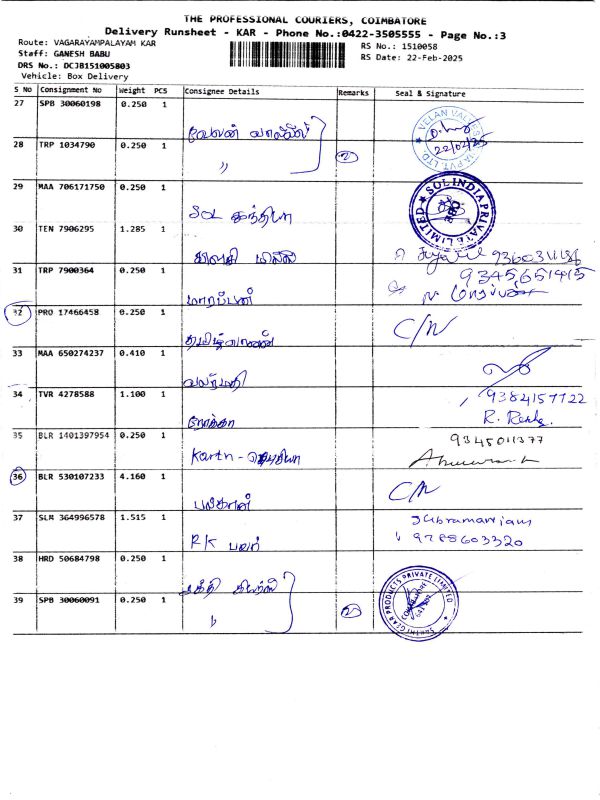 THE PROFESSIONAL COURIERS, COIMBATORE
Delivery Runsheet - KAR - Phone No.:0422-3505555 - Page No.:3
Route: VAGARAYAMPALAYAM KAR
RS No.: 1510058
Staff: GANESH BABU
RS Date: 22-Feb-2025
DRS No.: DCJB151005803
Vehicle: Box Delivery
S No Consignment No Weight PCS Consignee Details Remarks Seal & Signature
27 SPB 30060198 0.250 1
வேலன் வால்வ்
VELAN VALVES
PVT. LTD.
22/02/25
28 TRP 1034790 0.250 1
〃 2
29 MAA 706171750 0.250 1
SOL இந்தியா
SOL INDIA PRIVATE LIMITED
30 TEN 7906295 1.285 1
9360311186
31 TRP 7900364 0.250 1
9345651415
மாரப்பன்
32 PRO 17466458 0.250 1
C/N
33 MAA 650274237 0.410 1
வளர்மதி
34 TVR 4278588 1.100 1
9384157722
ரேகா R. Rekha
35 BLR 1401397954 0.250 1
9345011377
Kartn -
36 BLR 530107233 4.160 1
C/N
37 SLM 364996578 1.515 1
Subramaniam
RK பவர் 9788603320
38 HRD 50684798 0.250 1
சக்தி கியர்ஸ்
SAKTHI GEAR PRODUCTS PRIVATE LIMITED
39 SPB 30060091 0.250 1
〃 2